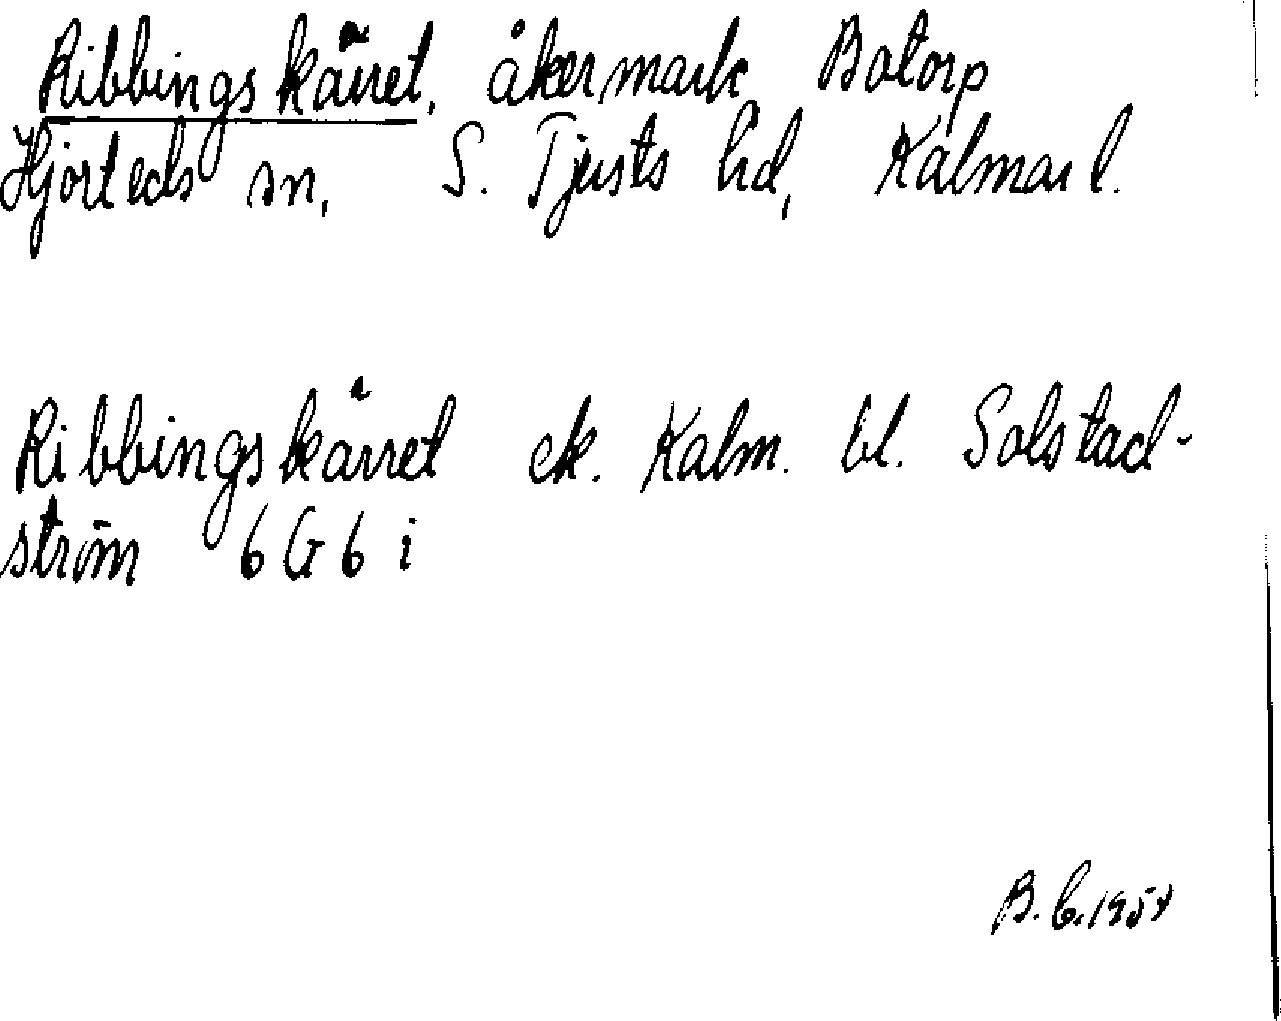 Ribbingskärret, åkermark Botorp
Hjorteds sn, S. Tjusts hd, Kalmar l.
Ribbingskärret ek. Kalm. bl. Solstad-
ström 6 G 6 i
B. C. 1954